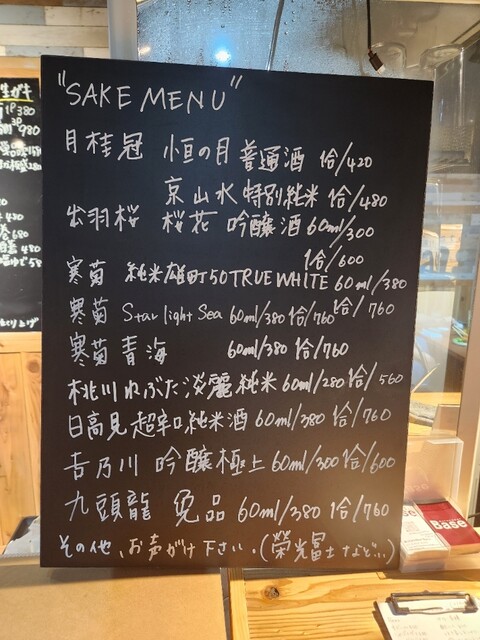 "SAKE MENU"
月桂冠 恒の月 普通酒 1合/420
京山水 特別純米 1合/480
出羽桜 桜花 吟醸酒 60ml/300
1合/600
寒菊 純米雄町50 TRUE WHITE 60ml/380
1合/760
寒菊 Star light Sea 60ml/380 1合/760
寒菊 青海 60ml/380 1合/760
桃川 ねぶた 淡麗純米 60ml/280 1合/560
日高見 超辛口純米酒 60ml/380 1合/760
吉乃川 吟醸極上 60ml/300 1合/600
九頭龍 逸品 60ml/380 1合/760
その他、お声がけ下さい。(榮光冨士など...)
Base